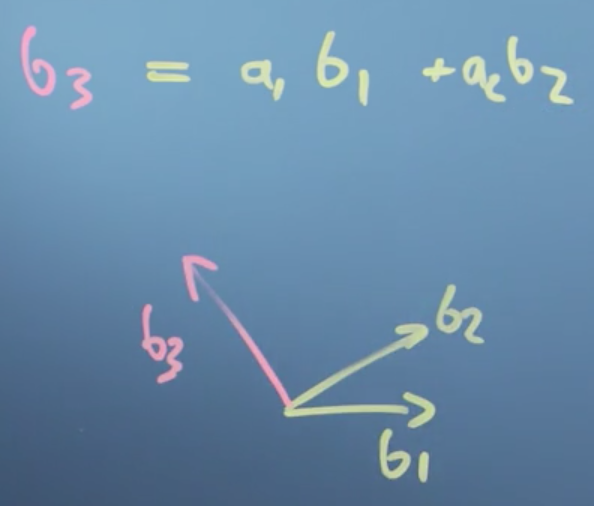 b3 = a1 b1 + a2 b2
b2
b3
b1